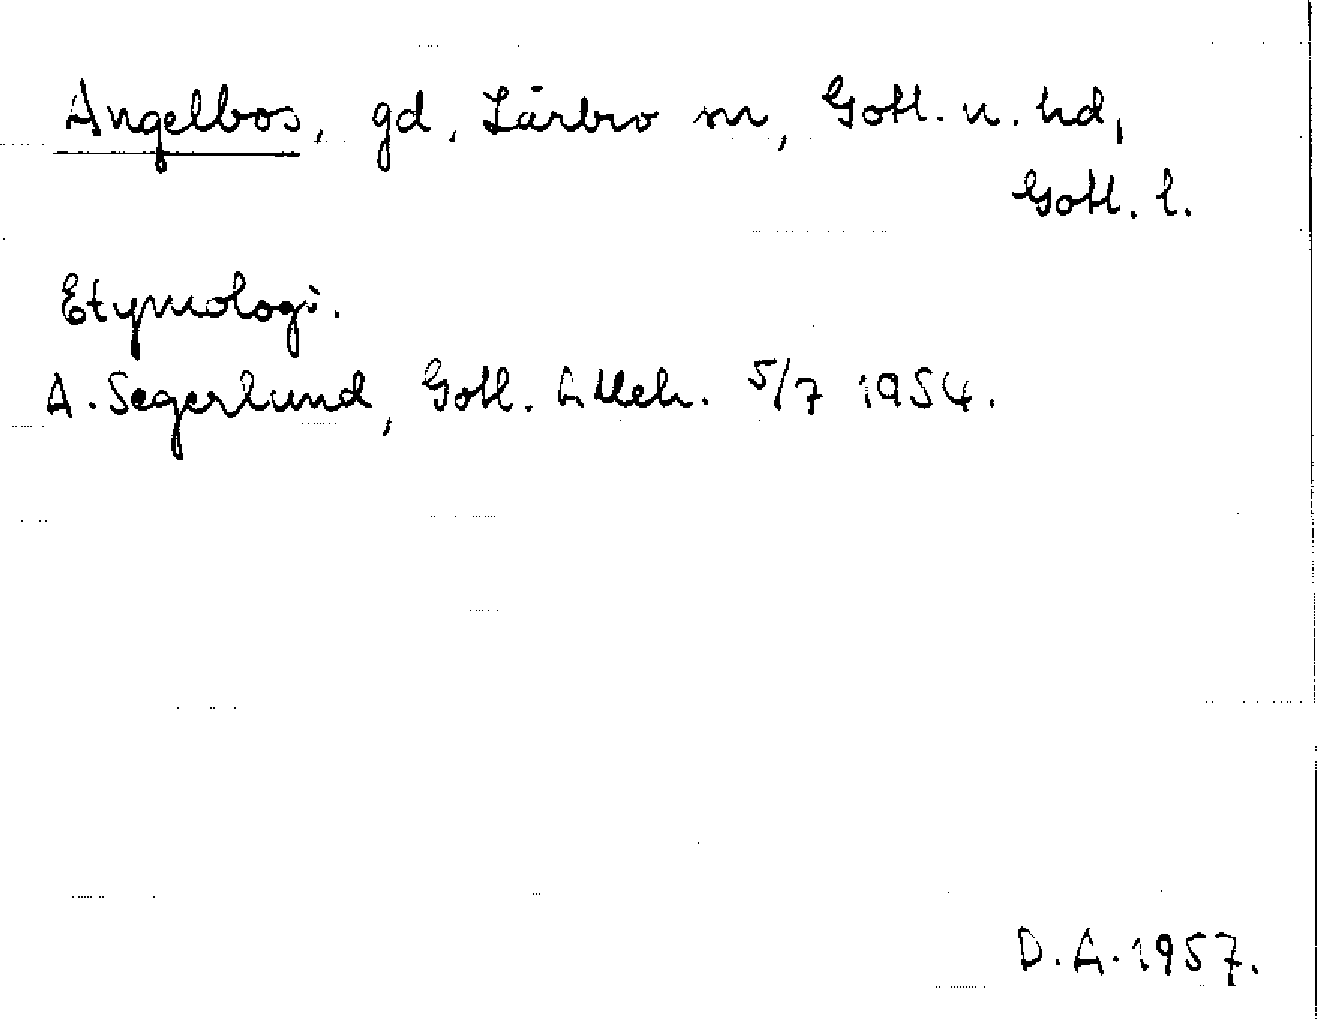 Angelbos, gd, Lärbro sn, Gotl. n. hd,
Gotl. l.
Etymologi.
A. Segerlund, Gotl. Alleh. 5/7 1954.
D. A. 1957.